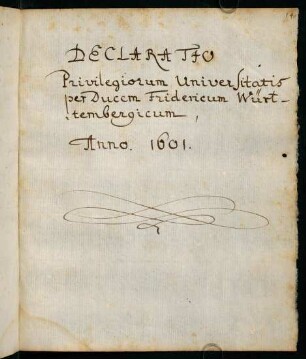 DECLARATIO
Privilegiorum Universitatis
per Ducem Fridericum Würt-
tembergicum,
Anno. 1601.